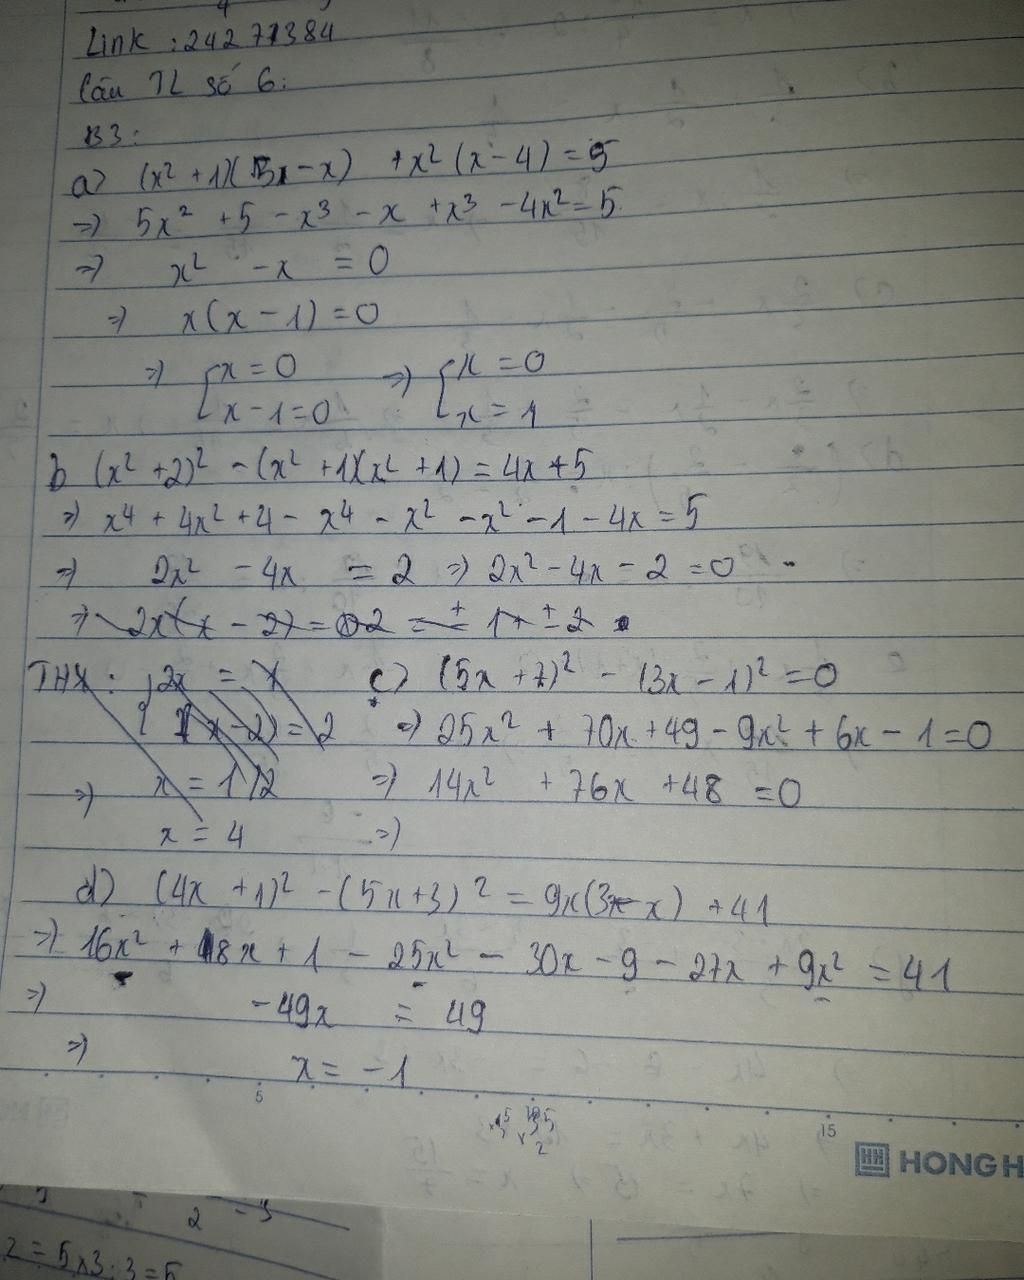 Link : 24271384
Câu TL số 6:
B3:
a) (x² + 1)(5 - x) + x² (x - 4) = 5
=> 5x² + 5 - x³ - x + x³ - 4x² = 5
=> x² - x = 0
=> x(x - 1) = 0
=> [x = 0 => [x = 0
x - 1 = 0 x = 1
b (x² + 2)² - (x² + 1)(x² + 1) = 4x + 5
=> x⁴ + 4x² + 4 - x⁴ - x² - x² - 1 - 4x = 5
=> 2x² - 4x = 2 => 2x² - 4x - 2 = 0
=> 2x(x - 2) = 02 = ± 1, ± 2
TH1 : 2x = 1
(x - 2) = 2
=> x = 1/2
x = 4
c) (5x + 7)² - (3x - 1)² = 0
=> 25x² + 70x + 49 - 9x² + 6x - 1 = 0
=> 14x² + 76x + 48 = 0
=>
d) (4x + 1)² - (5x + 3)² = 9x(3 - x) + 41
=> 16x² + 8x + 1 - 25x² - 30x - 9 - 27x + 9x² = 41
=> -49x = 49
=> x = -1
5
15
HONG H
2 - 3
2 = 5x3:3 = 5